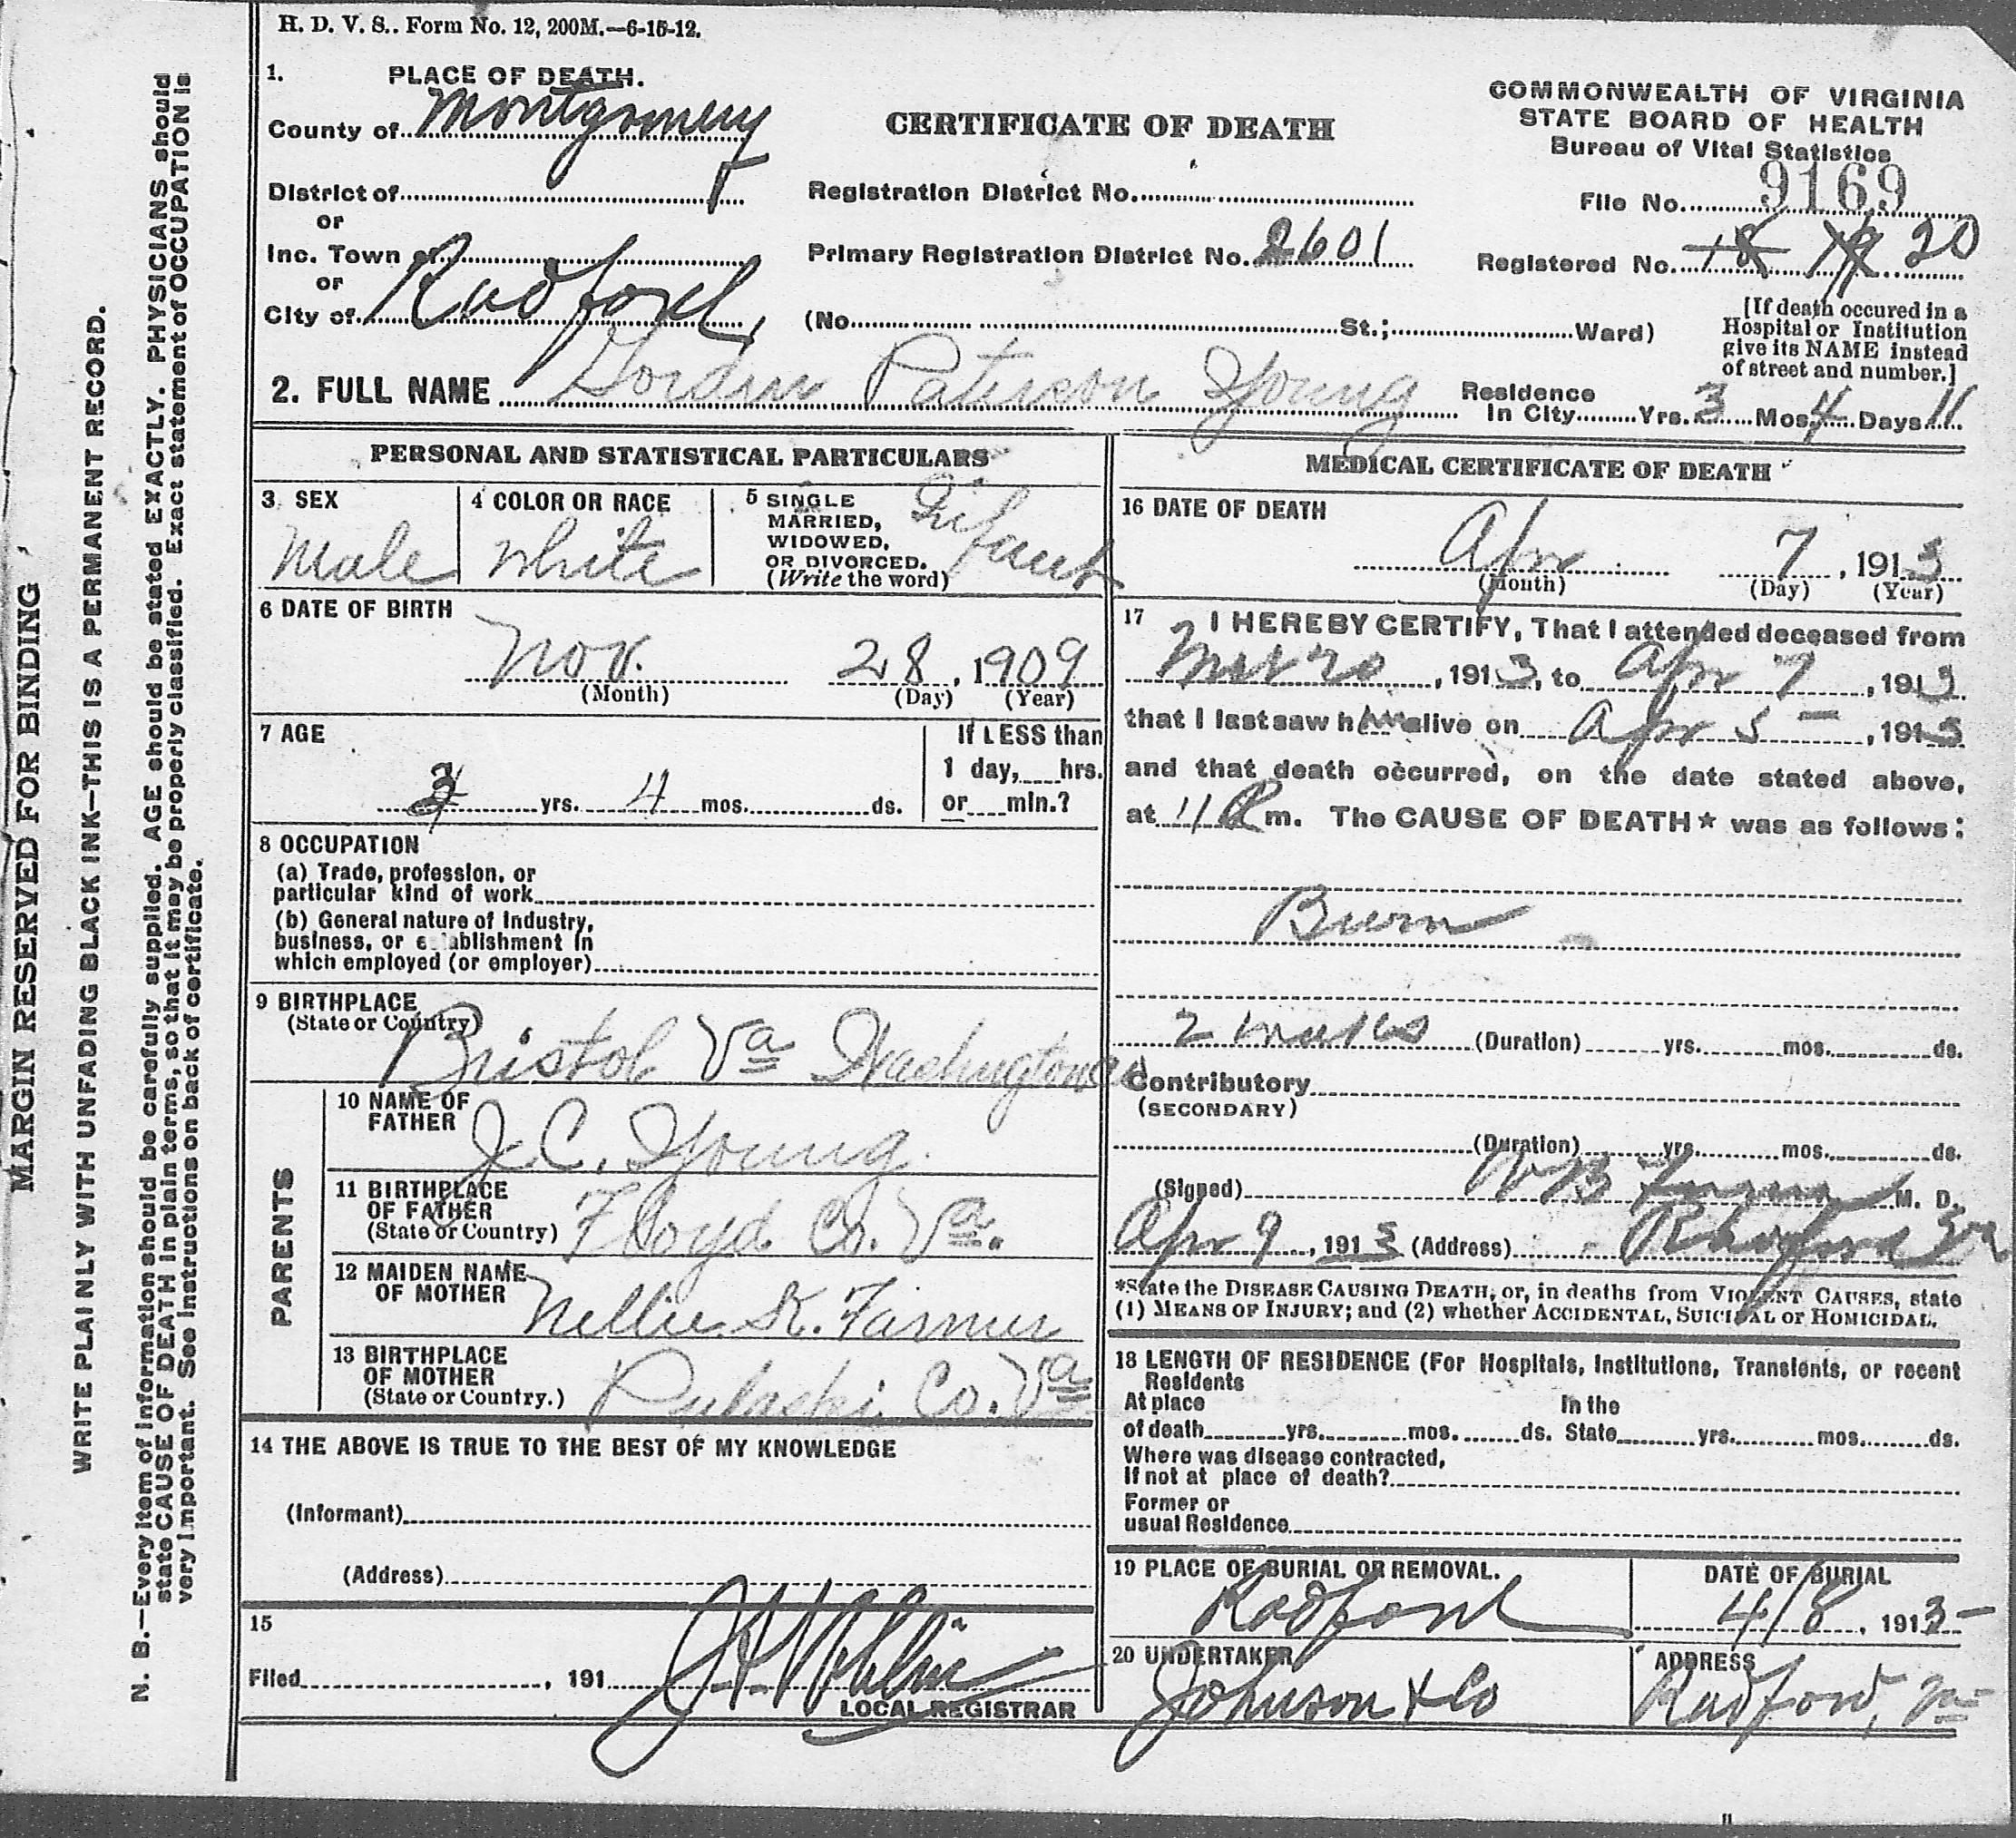 H. D. V. S.. Form No. 12, 200M.—6-15-12.
1. PLACE OF DEATH.
County of Montgomery
District of
or
Inc. Town of
or
City of Radford,
CERTIFICATE OF DEATH
Registration District No.
Primary Registration District No. 2601
(No. St.; Ward)
COMMONWEALTH OF VIRGINIA
STATE BOARD OF HEALTH
Bureau of Vital Statistics
File No. 9169
Registered No. 18 19 20
[If death occured in a
Hospital or Institution
give its NAME instead
of street and number.]
2. FULL NAME Gordon Paterson Young
Residence
In City Yrs. 3 Mos. 4 Days 11
PERSONAL AND STATISTICAL PARTICULARS
3 SEX
Male
4 COLOR OR RACE
White
5 SINGLE
MARRIED,
WIDOWED,
OR DIVORCED.
(Write the word)
Infant
6 DATE OF BIRTH
Nov. 28, 1909
(Month) (Day) (Year)
7 AGE
3 yrs. 4 mos. ds.
If LESS than
1 day, hrs.
or min.?
8 OCCUPATION
(a) Trade, profession, or
particular kind of work
(b) General nature of Industry,
business, or establishment in
which employed (or employer)
9 BIRTHPLACE
(State or Country)
Bristol Va Washington Co
PARENTS
10 NAME OF
FATHER
J. C. Young.
11 BIRTHPLACE
OF FATHER
(State or Country)
Floyd Co. Va.
12 MAIDEN NAME
OF MOTHER
Nellie K. Farmer
13 BIRTHPLACE
OF MOTHER
(State or Country.)
Pulaski Co. Va
14 THE ABOVE IS TRUE TO THE BEST OF MY KNOWLEDGE
(Informant)
(Address)
15
Filed , 191
LOCAL REGISTRAR
MEDICAL CERTIFICATE OF DEATH
16 DATE OF DEATH
Apr 7, 1913
(Month) (Day) (Year)
17 I HEREBY CERTIFY, That I attended deceased from
20, 1913, to Apr 7, 1913
that I last saw him alive on Apr 5, 1913
and that death occurred, on the date stated above,
at 11 P m. The CAUSE OF DEATH* was as follows:
Burn
2 weeks (Duration) yrs. mos. ds.
Contributory
(SECONDARY)
(Duration) yrs. mos. ds.
(Signed) W B M. D.
Apr 9, 1913 (Address) Radford Va
*State the DISEASE CAUSING DEATH, or, in deaths from VIOLENT CAUSES, state
(1) MEANS OF INJURY; and (2) whether ACCIDENTAL, SUICIDAL or HOMICIDAL.
18 LENGTH OF RESIDENCE (For Hospitals, Institutions, Transients, or recent
Residents
At place In the
of death yrs. mos. ds. State yrs. mos. ds.
Where was disease contracted,
If not at place of death?
Former or
usual Residence
19 PLACE OF BURIAL OR REMOVAL.
Radford
DATE OF BURIAL
4/8, 1913
20 UNDERTAKER
Johnson & Co
ADDRESS
Radford, Va
MARGIN RESERVED FOR BINDING
WRITE PLAINLY WITH UNFADING BLACK INK—THIS IS A PERMANENT RECORD.
N. B.—Every item of information should be carefully supplied. AGE should be stated EXACTLY. PHYSICIANS should
state CAUSE OF DEATH in plain terms, so that it may be properly classified. Exact statement of OCCUPATION is
very important. See instructions on back of certificate.